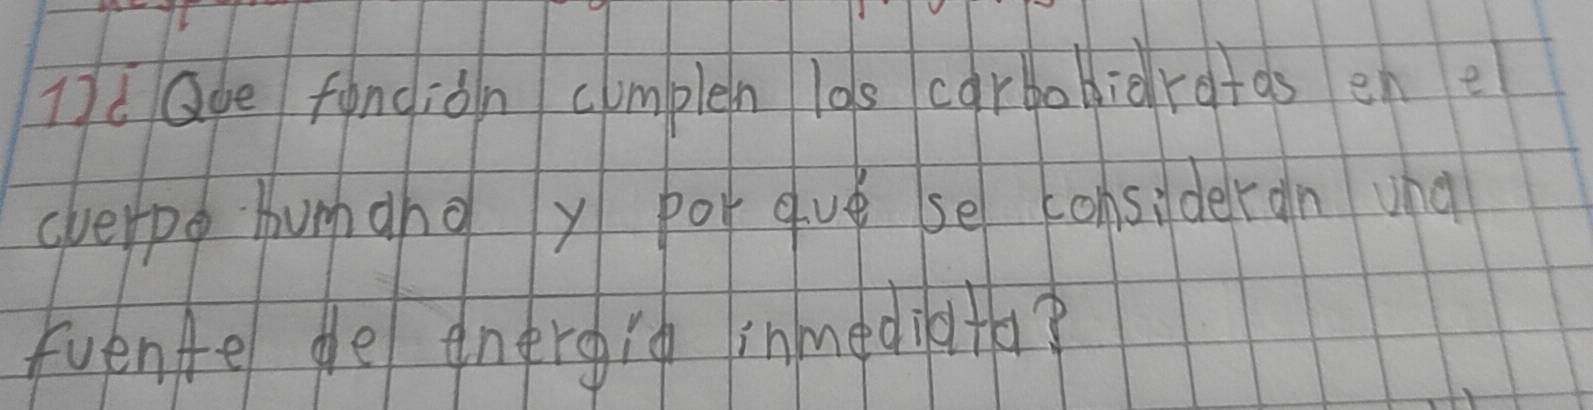 1) ¿Que función cumplen los carbohidratos en el
cuerpo humano y por qué se consideran una
fuente de energía inmediata?